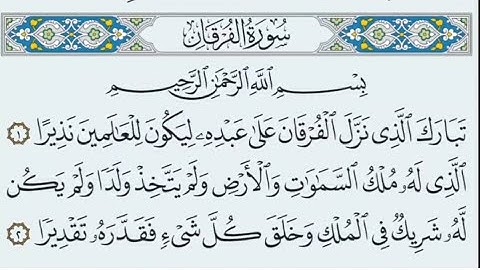 سُورَةُ الفُرْقَانِ
بِسْمِ اللَّهِ الرَّحْمَٰنِ الرَّحِيمِ
تَبَارَكَ الَّذِي نَزَّلَ الْفُرْقَانَ عَلَىٰ عَبْدِهِۦ لِيَكُونَ لِلْعَٰلَمِينَ نَذِيرًا ١
الَّذِي لَهُۥ مُلْكُ السَّمَٰوَٰتِ وَالْأَرْضِ وَلَمْ يَتَّخِذْ وَلَدًا وَلَمْ يَكُن
لَّهُۥ شَرِيكٌ فِي الْمُلْكِ وَخَلَقَ كُلَّ شَيْءٍ فَقَدَّرَهُۥ تَقْدِيرًا ٢